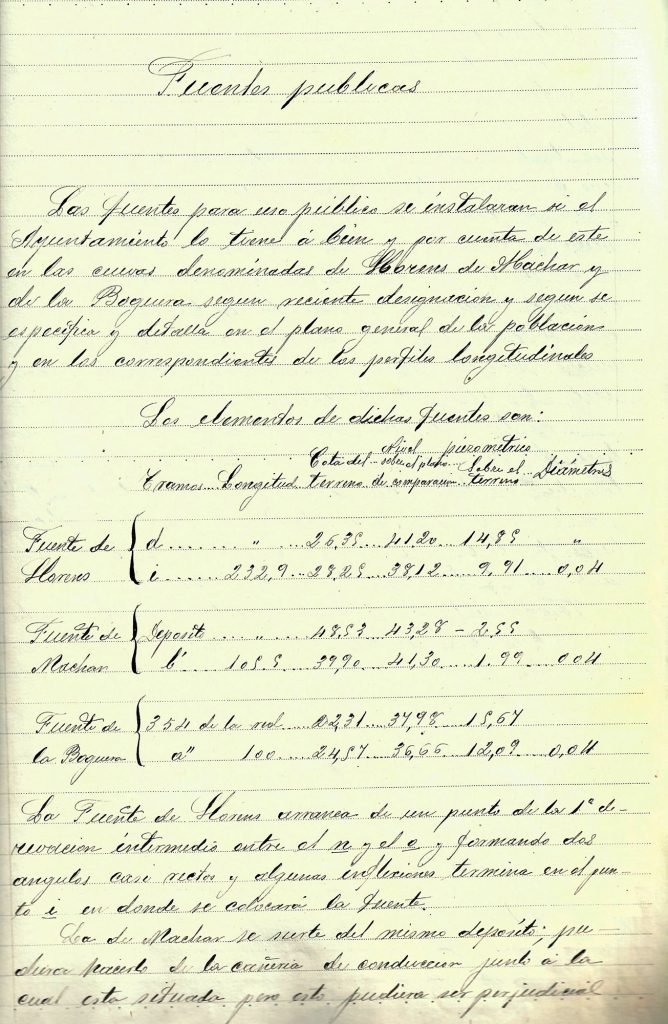 Fuentes publicas
Las fuentes para uso público se instalaran si el
Ayuntamiento lo tiene á bien y por cuenta de este
en las cuevas denominadas de Llorens de Machar y
de la Boguera segun reciente designacion y segun se
especifica y detalla en el plano general de la poblacion
y en los correspondientes de los perfiles longitudinales
Los elementos de dichas fuentes son:
Nivel piezometrico
Tramos Longitud Cota del terreno sobre el plano de comparacion Sobre el terreno Diámetros
Fuente de Llorens
d ........ " .... 26,35 .... 41,20 .... 14,85 "
i ....... 232,9 ... 28,25 .... 38,12 ..... 9,91 .... 0,04
Fuente de Machar
Deposito .... " ..... 48,53 .... 43,28 - 2,55
b' 105,5 ..... 39,90 .... 41,30 ..... 1,99 0,04
Fuente de la Boguera
354 de la red 37,98 ... 15,67
a" 100 ..... 24,57 ... 36,66 .... 12,09 .. 0,04
La Fuente de Llorens arranca de un punto de la 1ª de-
rivacion intermedio entre el n y el o y formando dos
angulos casi rectos y algunas inflexiones termina en el pun-
to i en donde se colocará la fuente.
La de Machar se surte del mismo depósito; pu
diera hacerlo de la cañeria de conduccion junto á la
cual esta situada pero esto pudiera ser perjudicial